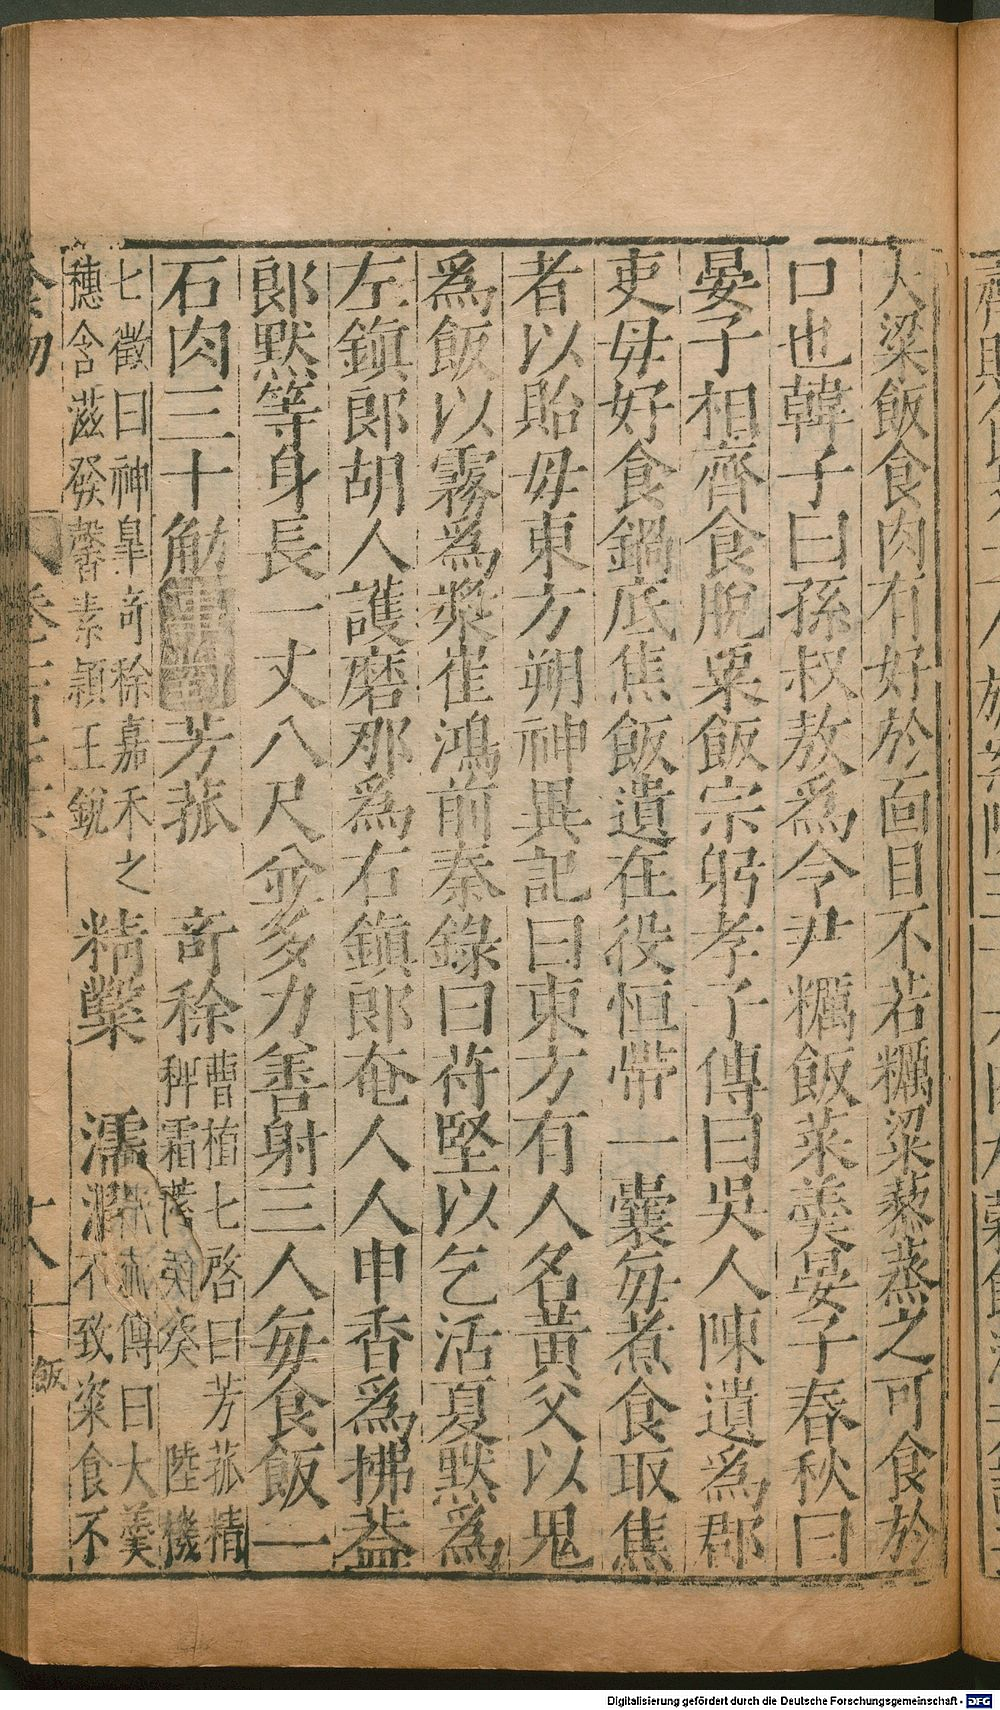 大梁飯食肉有好於面目不若糲粱藜蒸之可食於
口也韓子曰孫叔敖爲令尹糲飯菜羹晏子春秋曰
晏子相齊食脫粟飯宗躬孝子傳曰吳人陳遺爲郡
吏母好食鍋底焦飯遺在役恒帶一囊每煮食取焦
者以貽母東方朔神異記曰東方有人名黃父以鬼
爲飯以霧爲漿崔鴻前秦錄曰苻堅以乞活夏默爲
左鎮郎胡人護磨那爲右鎮郎奄人人申香爲拂葢
郎默等身長一丈八尺並多力善射三人每食飯一
石肉三十斛
事對
芳菰 奇稌
曹植七啓曰芳菰精
粺霜蓄露葵 陸機
七徵曰神皐奇稌嘉禾之
穗含滋發馨素穎玉銳
精糳 濡
傳曰大羹
不致粢食不
食物
十八
飯
Digitalisierung gefördert durch die Deutsche Forschungsgemeinschaft - DFG